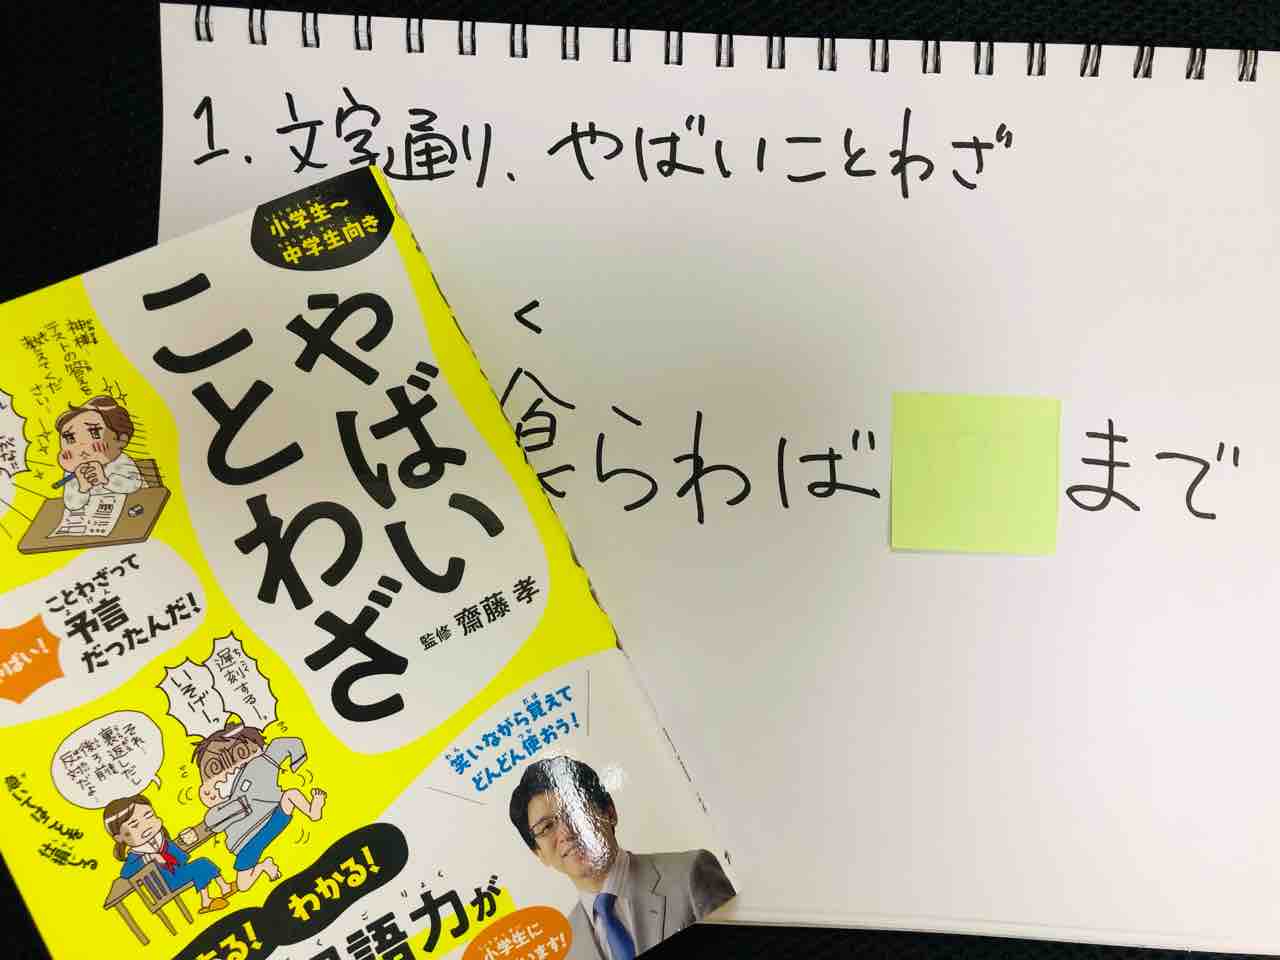 1. 文字通り、やばいことわざ
く
食らわば
まで
小学生〜
中学生向き
やばい
ことわざ
監修 齋藤 孝
神様…
テストの答えを
教えてくだ
さい…
ことわざって
予言
だったんだ!
やばい!
遅刻するー。
いそげーっ
それ…
裏返しだし
後ろ前だし
反対だよ…
急いてはことを
仕損じる
笑いながら覚えて
どんどん使おう!
わかる!
語力が
小学生に
います!